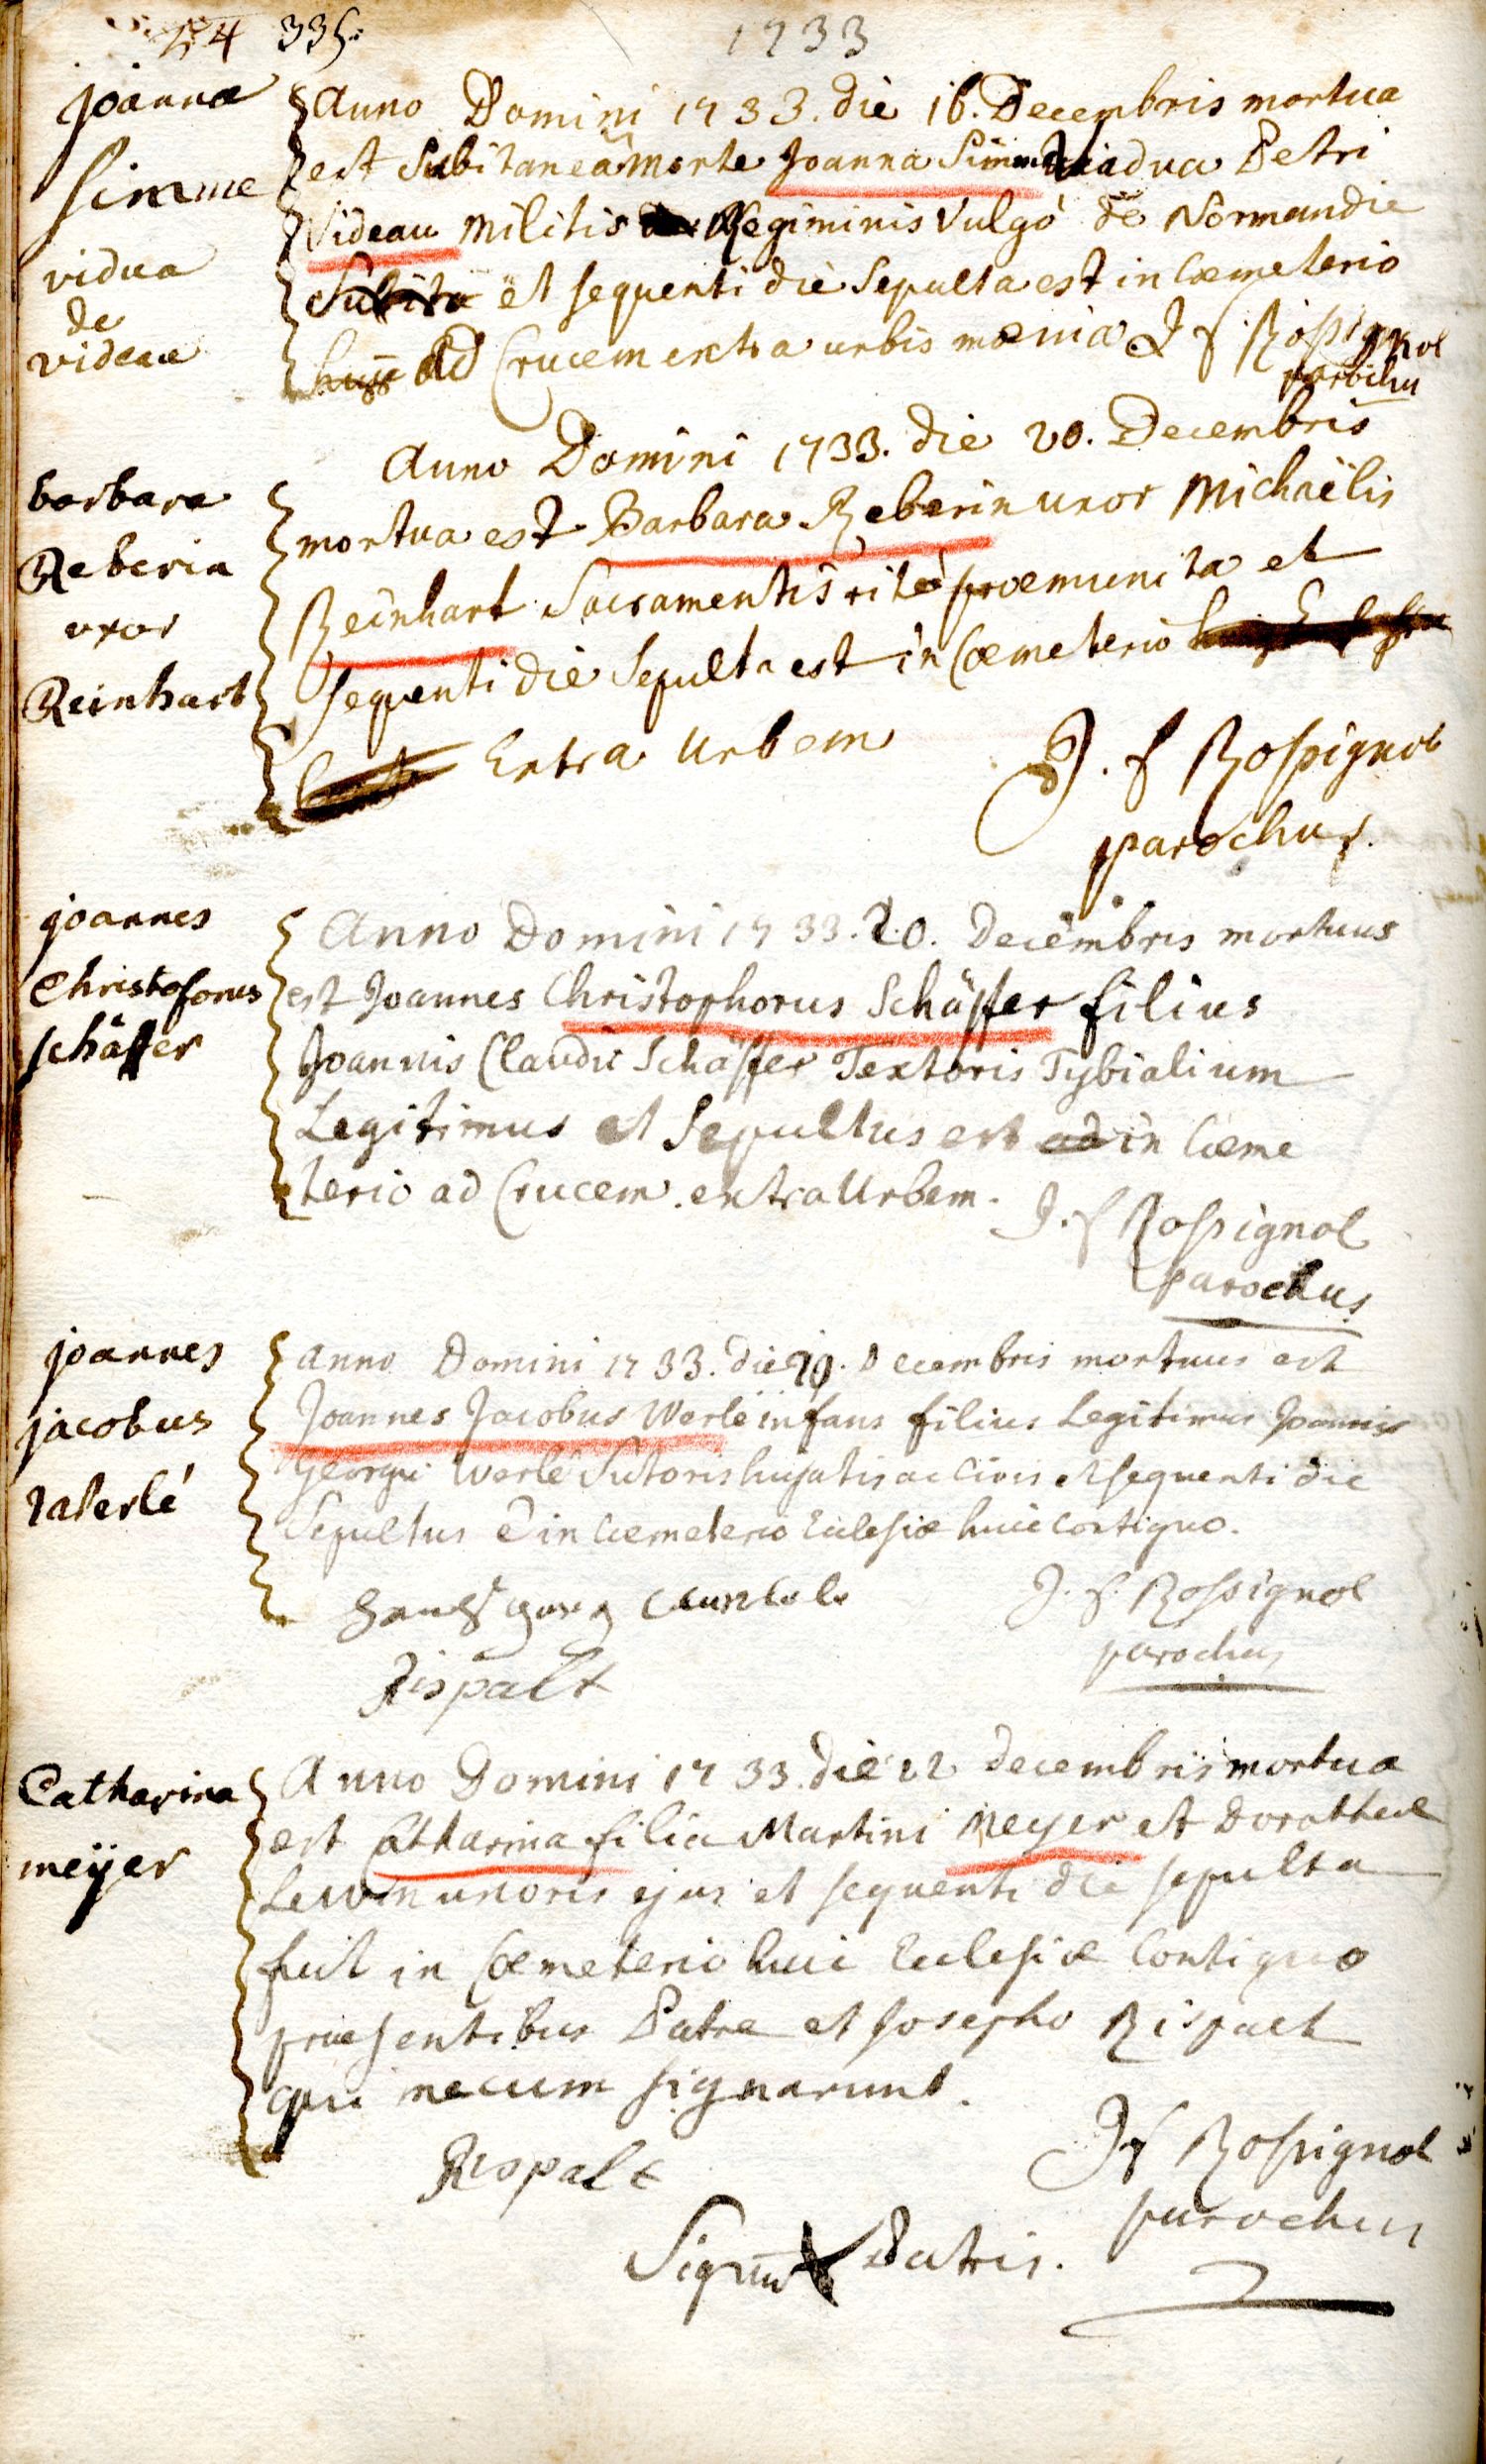 54 335.
1733
joanna
simme
vidua
de
videau
Anno Domini 1733. die 16. Decembris mortua
est Subitaneâ morte Joanna Simme viadua Petri
Videau Militis Regiminis Vulgò de Normandie
Subita et sequenti die Sepulta est in Cœmeterio
huj. ad Crucem extra urbis mœnia J f Rossignol
parochus
barbara
Reberin
uxor
Reinhart
Anno Domini 1733. die 20. Decembris
mortua est Barbara Reberin uxor Michaëlis
Reinhart Sacramentis ritè præmunita et
sequenti die Sepulta est in Cœmeterio
Extra Urbem
J. f Rossignol
parochus.
joannes
Christoforus
schäffer
Anno Domini 1733. 20. Decembris mortuus
est Joannes Christophorus Schäffer filius
Joannis Claudii Schäffer Textoris Tybialium
Legitimus et Sepultus est ad in Cœme
terio ad Crucem extra Urbem.
J. f Rossignol
parochus
joannes
jacobus
Waterlé
Anno Domini 1733. die 20. Decembris mortuus est
Joannes Jacobus Werlé infans filius Legitimus Joannis
Georgii Werlé Sutoris hujatis ac Civis et sequenti die
Sepultus ē in Cœmeterio Ecclesiæ huic contiguo.
Rispalt
J. f. Rossignol
parochus
Catharina
meÿer
Anno Domini 1733. die 22 decembris mortua
est Catharina filia Martini Meyer et Dorotheæ
Lewin uxoris ejus et sequenti die sepulta
fuit in Cœmeterio huic Ecclesiæ Contiguo
præsentibus Patre et Josepho Rispalt
qui mecum signarunt.
Rispalt
J f Rossignol
parochus
Signū Patris.